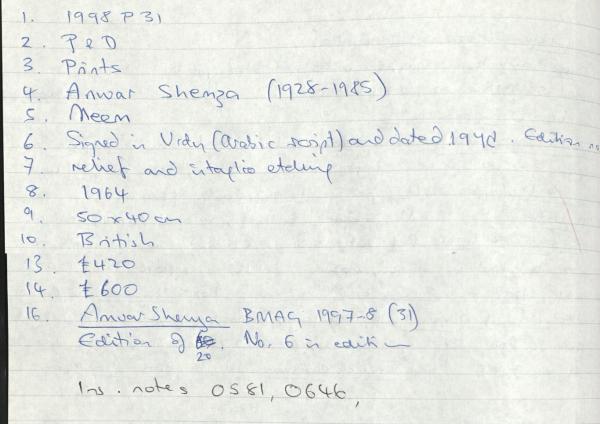 1. 1998 P 31
2. P & D
3. Prints
4. Anwar Shemza (1928-1985)
5. Meem
6. Signed in Urdu (Arabic script) and dated . Edition
7. relief and intaglio etching
8. 1964
9. 50 x 40 cm
10. British
13. £420
14. £600
16. Anwar Shemza BMAG 1997-8 (31)
Edition of 20. No. 6 in edition
Ins. notes 0581, 0646,